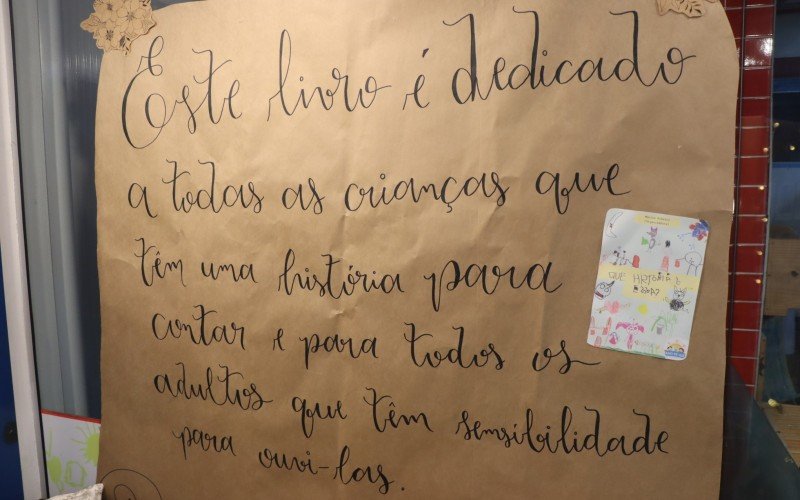 Este livro é dedicado
a todas as crianças que
têm uma história para
contar e para todos os
adultos que têm sensibilidade
para ouvi-las.